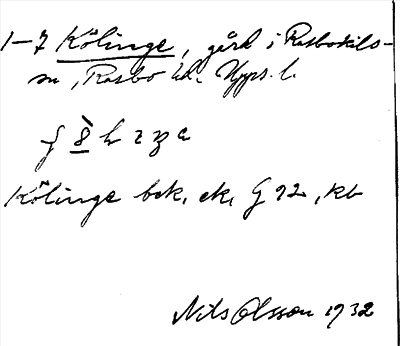 1-7 Kölinge, gård i Rasbokils-
sn, Rasbo hd. Upps. l.
Kölinge bok. ek. G 92, kb
Nils Olsson 1932